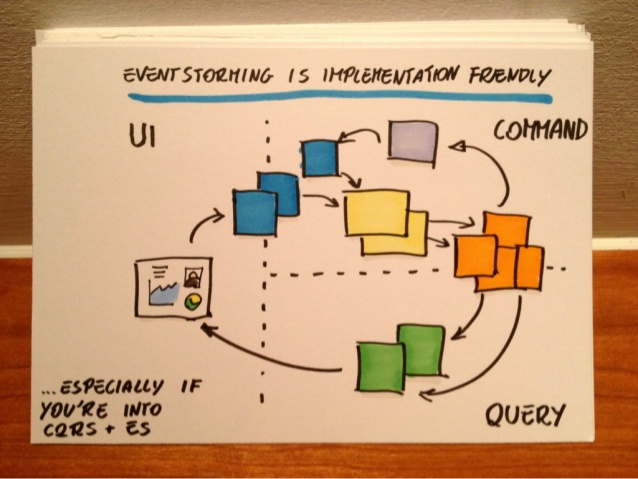 EVENTSTORMING IS IMPLEMENTATION FRIENDLY
UI
COMMAND
...ESPECIALLY IF
YOU'RE INTO
CQRS + ES
QUERY